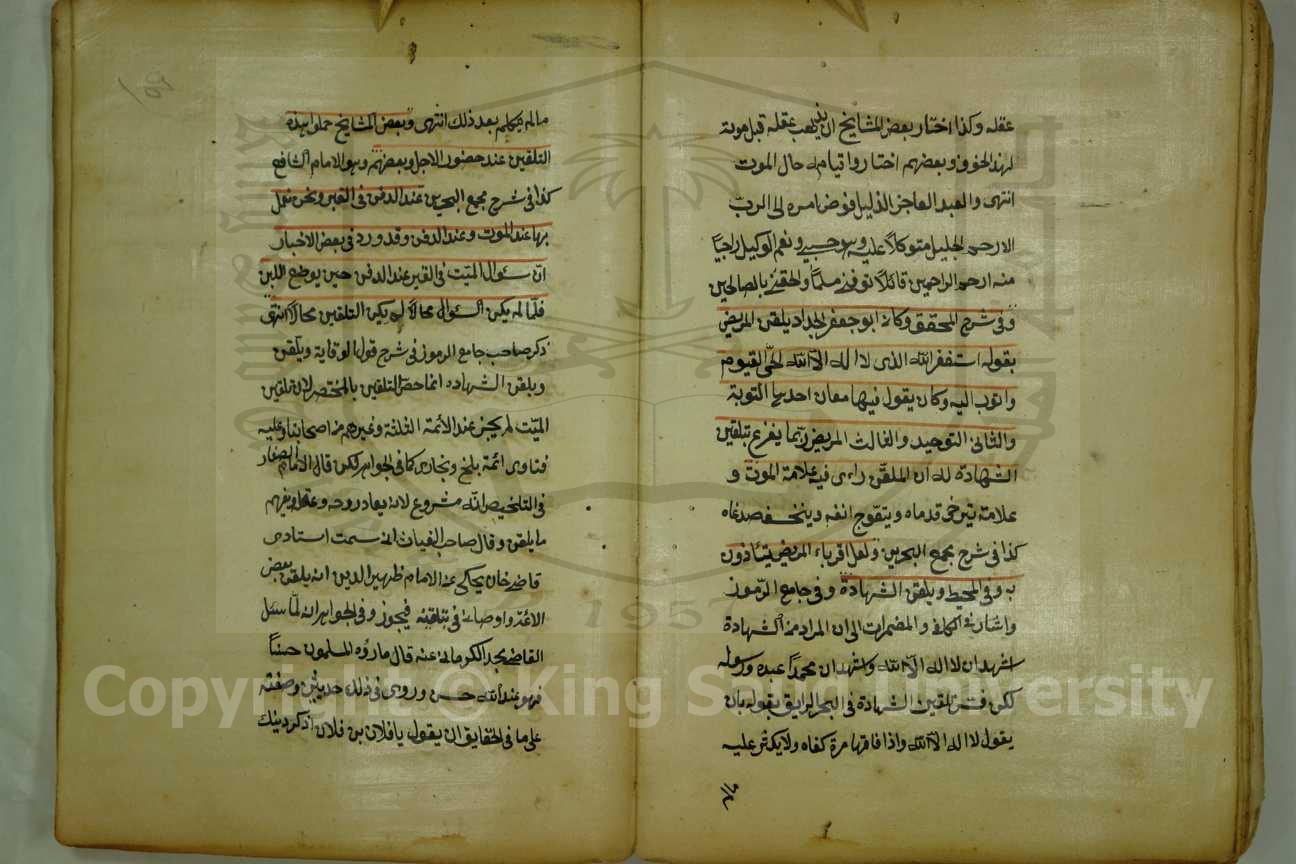 عقله وكذا اختار بعض المشايخ ان يذهب عقله قبل موته
لهذا الخوف وبعضهم اختاروا قيامه حال الموت
انتهى والعبد العاجز الذليل فوض امره الى الرب
الارحم الجليل متوكلاً عليه وهو حسبي ونعم الوكيل راجياً
منه ارحم الراحمين قائلاً توفني مسلماً والحقني بالصالحين
وفي شرح المحقق وكان ابو جعفر الحداد يلقن المريض
بقوله استغفر الله الذى لا اله الا الله الحى القيوم
واتوب اليه وكان يقول فيها معان احديها التوبة
والثانى التوحيد والثالث المريض ربما يفزع بتلقين
الشهادة له ان الملقن راى فيه علامة الموت و
علامته تيرخى قدماه ويتقوج انفه وينخسف صدغاه
كذا فى شرح مجمع البحرين ولعل اقرباء المريض يتئاذون
به وفى المحيط ويلقن الشهادة وفى جامع الرموز
واشار فى الكافى والمضمرات الى ان المراد من الشهادة
اشهد ان لا اله الا الله واشهد ان محمداً عبده ورسوله
لكن فسر تلقين الشهادة فى البحر الرايق بقوله بان
يقول لا اله الا الله واذا قالها مرة كفاه ولا يكثر عليه
مالم
مالم يتكلم بعد ذلك انتهى وبعض المشايخ حملوا هذه
التلقين عند حضور الاجل وبعضهم وهو الامام الشافع
كذا فى شرح مجمع البحرين عند الدفن فى القبر ونحن نعمل
بها عند الموت وعند الدفن وقد ورد فى بعض الاخبار
ان سئوال الميت فى القبر عند الدفن حين يوضع اللبن
فلما لم يكن السئوال محالاً لم يكن التلقين محالاً انتهى
ذكر صاحب جامع الرموز فى شرح قول الوقاية ويلقن
ويلقن الشهاده انما خص التلقين بالمحتضر لان تلقين
الميت لم يجز عند الائمة الثلثة وغيرهم من اصحابنا وعليه
فتاوى ائمة بلخ وبخارى كما فى الجواهر لكن قال الامام الصفار
فى التلخيص انه مشروع لانه يعاد روحه وعقله ويفهم
ما يلقن وقال صاحب الغياث انى سمعت استادى
قاضى خان يحكى عن الامام ظهير الدين انه يلقن بعض
الائمة واوصاه فى تلقينه فيجوز وفى الجواهر انه لما سئل
القاضى مجد الكرمانى عنه قال ما رؤه المسلمون حسناً
فهو عند الله حسن وروى فى ذلك حديثين وصفته
على ما فى الحقايق ان يقول يا فلان بن فلان اذكر دينك
Copyright © King Saud University
1957